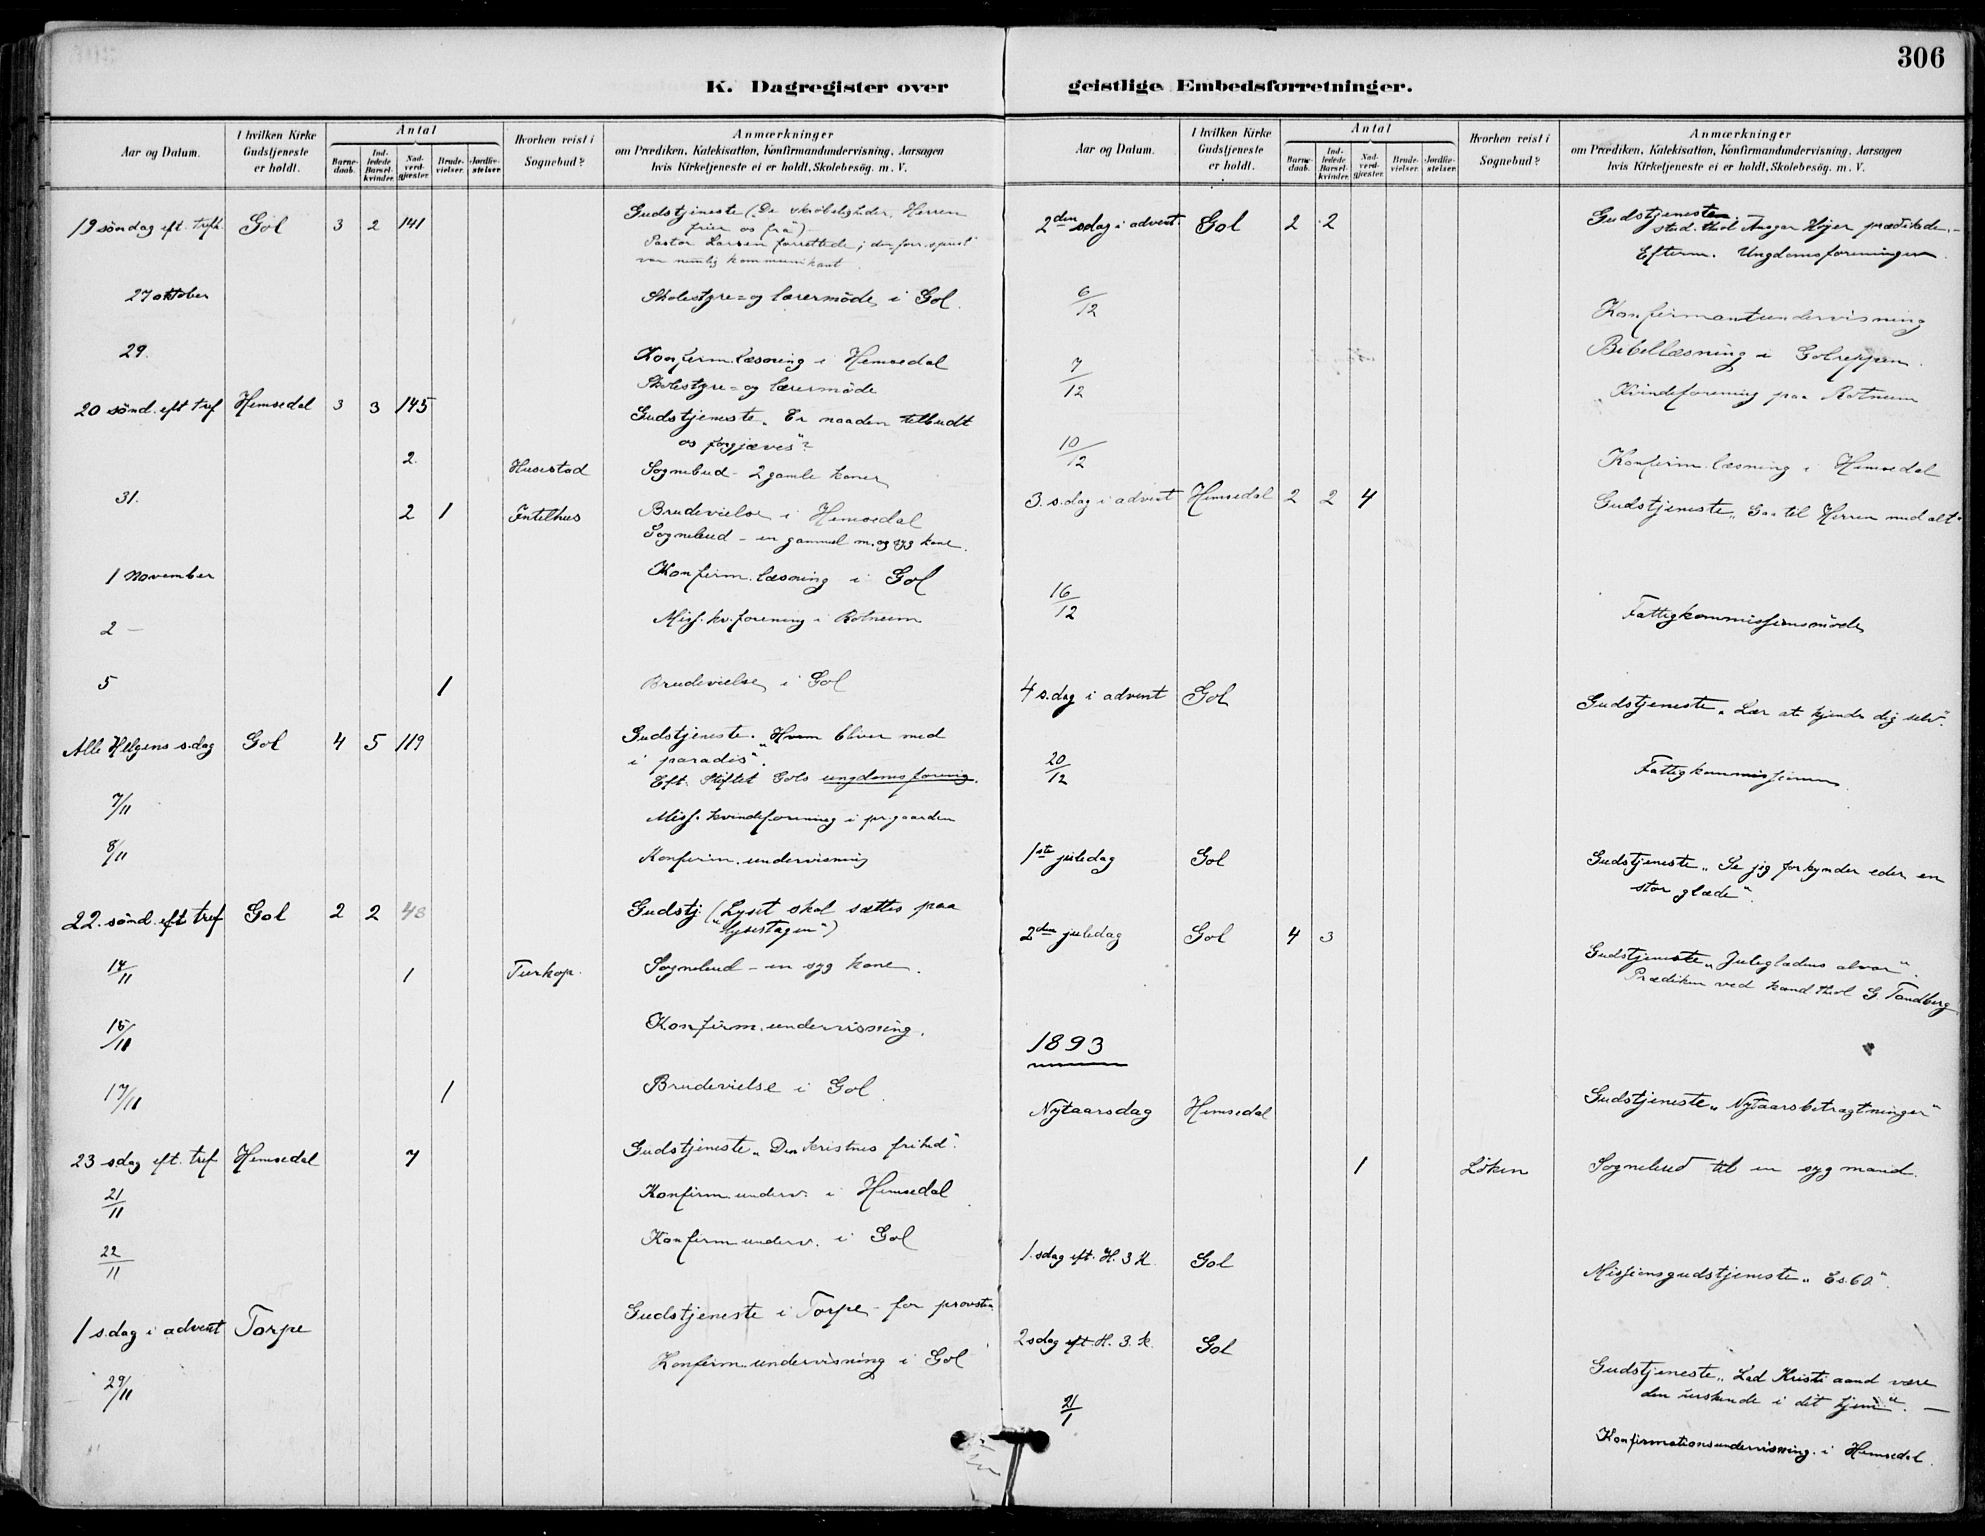 306
K. Dagregister over geistlige Embedsforretninger.
Aar og Datum.
I hvilken Kirke Gudstjeneste er holdt.
Antal
Barne-daab.
Ind-ledede Barsel-kvinder.
Nad-verd-gjæster.
Brude-vielser.
Jordfæ-stelser.
Hvorhen reist i Sognebud?
Anmærkninger
om Prædiken, Katekisation, Konfirmandundervisning, Aarsagen
hvis Kirketjeneste ei er holdt, Skolebesøg. m. V.
19 söndag eft. trefh. Gol 3 2 141 Gudstjeneste („De skröbeligheder, Herren
frier os fra“)
Pastor Larsen forrettede; den forr. sp.
var nemlig kommunikant
27 oktober Skolestyre- og lærermöde i Gol.
29. Konferm. læsning i Hemsedal
Skolestyre- og lærermöde
20 sönd. eft. tref Hemsedal 3 3 145 Gudstjeneste „Er naaden tilbudt
os forgjæves“?
2. Husestad Sognebud - 2 gamle koner
31. 2 1 Brudevielse i Hemsedal
Sognebud - en gammel m. og syg kone.
1 November Konfirm. læsning i Gol
2 — Miss. kv. forening i Rotneim
5 1 Brudevielse i Gol
Alle Helgens s.dag Gol 4 5 119 Gudstjeneste. „Hvem bliver med
i paradis“.
Eft. Stiftet Gols ungdomsforenig.
7/11 Miss. kvindeforening i pr.gaarden
8/11 Konferm. undervisning
22. sönd. eft tref Gol 2 2 48 Gudstj („Lyset skal sættes paa
lysestagen“)
14/11 1 Turkop. Sognebud - en syg kone.
15/11 Konfirm. undervisning.
17/11 1 Brudevielse i Gol.
23 sdag eft. tref Hemsedal 7 Gudstjeneste „Den kristnes frihed“.
21/11 Konfirm. underv. i Hemsedal
22/11 Konfirm underv. i Gol
1 s.dag i advent Torpe Gudstjeneste i Torpe - for provsten
29/11 Konferm. undervisning i Gol
Aar og Datum.
I hvilken Kirke Gudstjeneste er holdt.
Antal
Barne-daab.
Ind-ledede Barsel-kvinder.
Nad-verd-gjæster.
Brude-vielser.
Jordfæ-stelser.
Hvorhen reist i Sognebud?
Anmærkninger
om Prædiken, Katekisation, Konfirmandundervisning, Aarsagen
hvis Kirketjeneste ei er holdt, Skolebesøg. m. V.
2den sdag i advent. Gol 2 2 Gudstjeneste,
stud. theol Ansgar Höyer prædikede. —
Efterm. Ungdomsforeningen.
6/12 Konfirmantundervisning
7/12 Bibellæsning i Golreppen.
„ Kvindeforening paa Rotneim
10/12 Konferm. læsning i Hemsedal
3. s.dag i advent Hemsedal 2 2 4 Gudstjeneste „Gaa til Herren med alt“
16/12 Fattigkommissionsmöde
4 s.dag i advent Gol Gudstjeneste „Lær at kjende dig selv“.
20/12 Fattigkommissionen.
1ste juledag Gol Gudstjeneste „Se jeg forkynder eder en
stor glæde“.
2den juledag Gol 4 3 Gudstjeneste „Juleglædens alvor“.
Prædiken ved kand theol G Tandberg
1893
Nytaarsdag Hemsedal Gudstjeneste „Nytaarsbetragtninger“
1 Löken Sognebud til en syg mand.
1. sdag eft. H. 3 K. Gol Missionsgudstjeneste „Es. 60“.
2 sdag eft H. 3. k. Gol Gudstjeneste „Lad Kristi aand være
den herskende i dit hjem“. —
21/1 Konfirmationsundervisning. i Hemsedal.